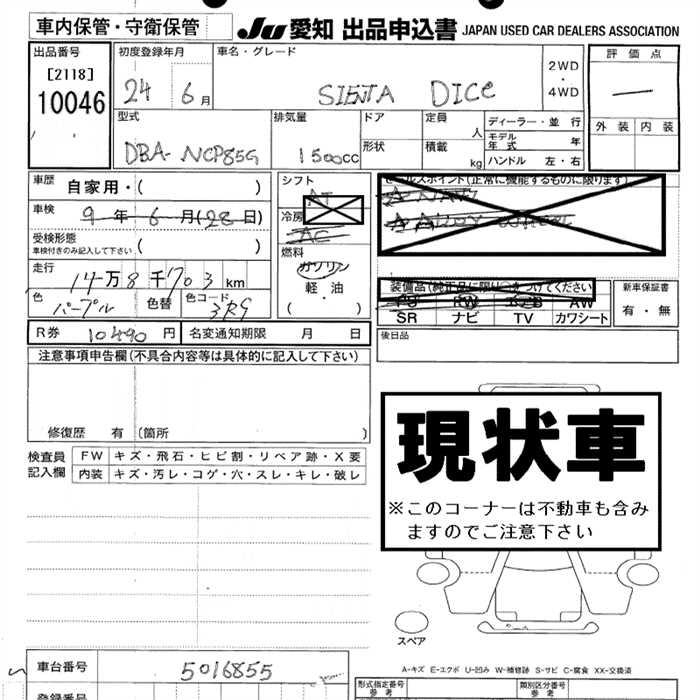 車内保管・守衛保管
JU 愛知 出品申込書 JAPAN USED CAR DEALERS ASSOCIATION
出品番号
[2118]
10046
初度登録年月
24 6月
車名・グレード
SIENTA DICE
2WD
・
4WD
評価点
—
外装 内装
型式
DBA-NCP85G
排気量
1500cc
ドア
形状
定員
人
積載
kg
ディーラー・並行
モデル年式 年
ハンドル 左・右
車歴 自家用・( )
車検 9年6月(28日)
受検形態
車検付きのみ記入して下さい ( )
走行 14万8千703km
色 パープル 色替 色コード 3R9
シフト
AT
冷房
AC
燃料
ガソリン
軽・油
( )
セールスポイント(正常に機能するものに限ります)
装備品(純正品に限り○をつけてください)
AW
SR ナビ TV カワシート
新車保証書
有・無
R券 10490円 名変通知期限 月 日
後日品
注意事項申告欄(不具合内容等は具体的に記入して下さい)
修復歴 有 (箇所 )
検査員記入欄
FW キズ・飛石・ヒビ割・リペア跡・X要
内装 キズ・汚レ・コゲ・穴・スレ・キレ・破レ
現状車
※このコーナーは不動車も含み
ますのでご注意下さい
スペア
A-キズ E-エクボ U-凹み W-補修跡 S-サビ C-腐食 XX-交換済
車台番号 5016855
登録番号
形式指定番号
参考
類別区分番号
参考